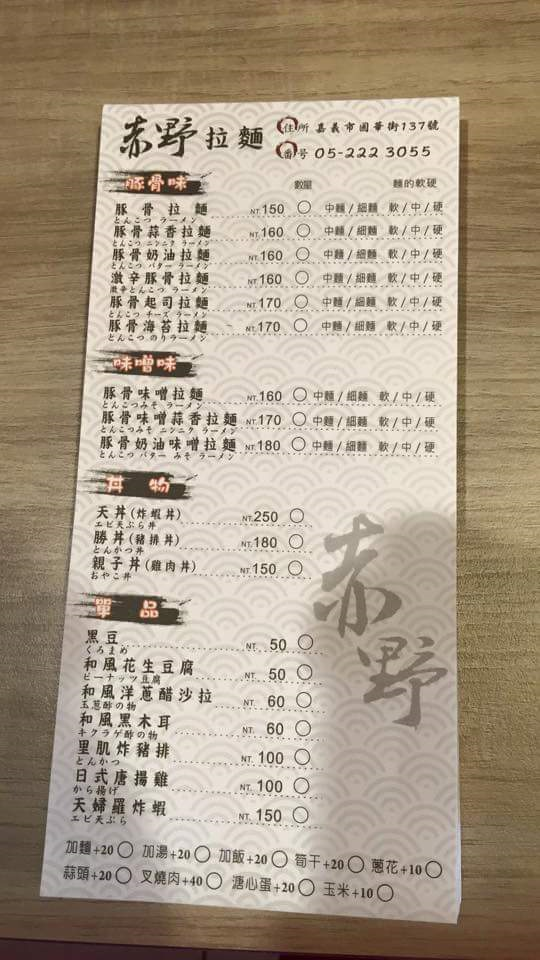 赤野拉麵 住所 嘉義市國華街137號
番号 05-222 3055
豚骨味 數量 麵的軟硬
豚骨拉麵 NT.150 ○ 中麵/細麵 軟/中/硬
とんこつ ラーメン
豚骨蒜香拉麵 NT.160 ○ 中麵/細麵 軟/中/硬
とんこつ ニンニク ラーメン
豚骨奶油拉麵 NT.160 ○ 中麵/細麵 軟/中/硬
とんこつ バター ラーメン
激辛豚骨拉麵 NT.160 ○ 中麵/細麵 軟/中/硬
激辛とんこつ ラーメン
豚骨起司拉麵 NT.170 ○ 中麵/細麵 軟/中/硬
とんこつ チーズ ラーメン
豚骨海苔拉麵 NT.170 ○ 中麵/細麵 軟/中/硬
とんこつ のりラーメン
味噌味
豚骨味噌拉麵 NT.160 ○ 中麵/細麵 軟/中/硬
とんこつみそ ラーメン
豚骨味噌蒜香拉麵 NT.170 ○ 中麵/細麵 軟/中/硬
とんこつみそ ニンニク ラーメン
豚骨奶油味噌拉麵 NT.180 ○ 中麵/細麵 軟/中/硬
とんこつ バター みそ ラーメン
丼物
天丼(炸蝦丼) NT.250 ○
エビ天ぷら丼
勝丼(豬排丼) NT.180 ○
とんかつ丼
親子丼(雞肉丼) NT.150 ○
おやこ丼
赤野
單品
黑豆 NT. 50 ○
くろまめ
和風花生豆腐 NT. 50 ○
ピーナッツ豆腐
和風洋蔥醋沙拉 NT. 60 ○
玉葱酢の物
和風黑木耳 NT. 60 ○
キクラゲ酢の物
里肌炸豬排 NT. 100 ○
とんかつ
日式唐揚雞 NT. 100 ○
から揚げ
天婦羅炸蝦 NT. 150 ○
エビ天ぷら
加麵+20○ 加湯+20○ 加飯+20○ 筍干+20○ 蔥花+10○
蒜頭+20○ 叉燒肉+40○ 溏心蛋+20○ 玉米+10○